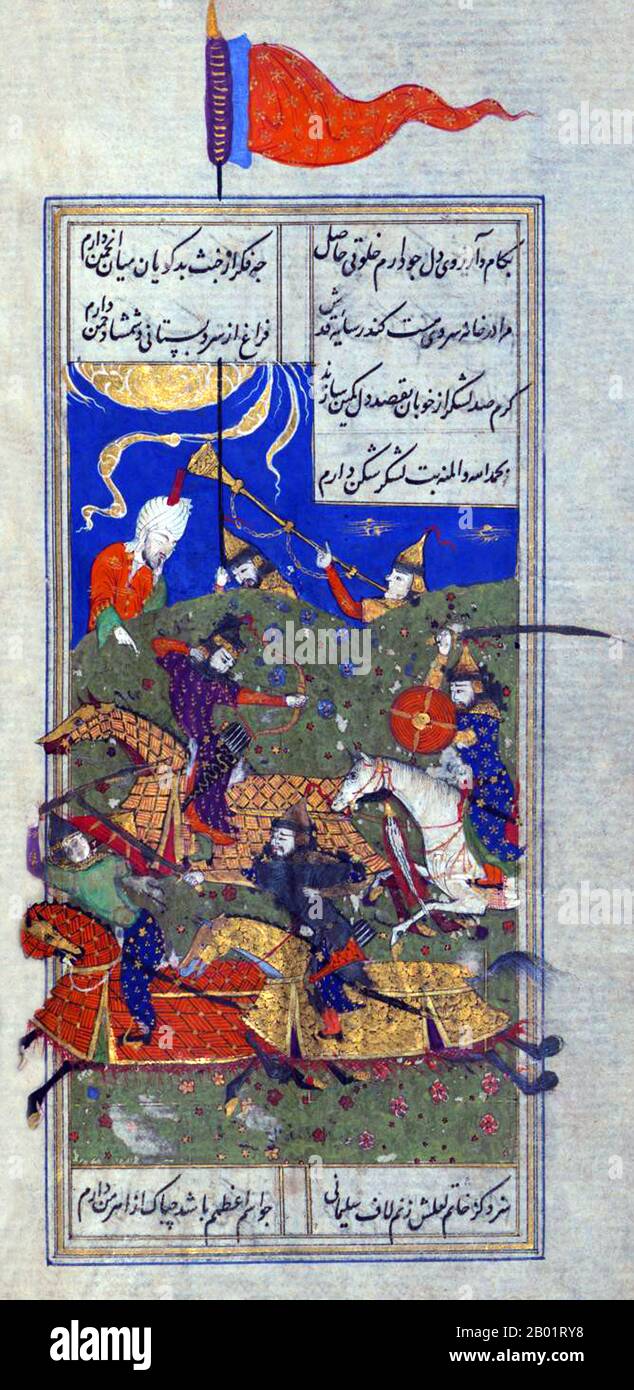 بکام و آرزوی دل چو دارم خلوتی حاصل چه فکر از خبث بدکویان میان انجمن دارم
مرا در خانه سروی هست کندر سایه قدش فراغ از سرو بستانی و شمشاد چمن دارم
کرم صد لشکر از خوبان بقصد دل کمین سازند
بحمد الله والمنه بت لشکر شکن دارم
سزد کز خاتم لعلش زنم لاف سلیمانی چو اسم اعظمم باشد چباک از اهرمن دارم
alamy
Image ID: 2B01RY8
www.alamy.com